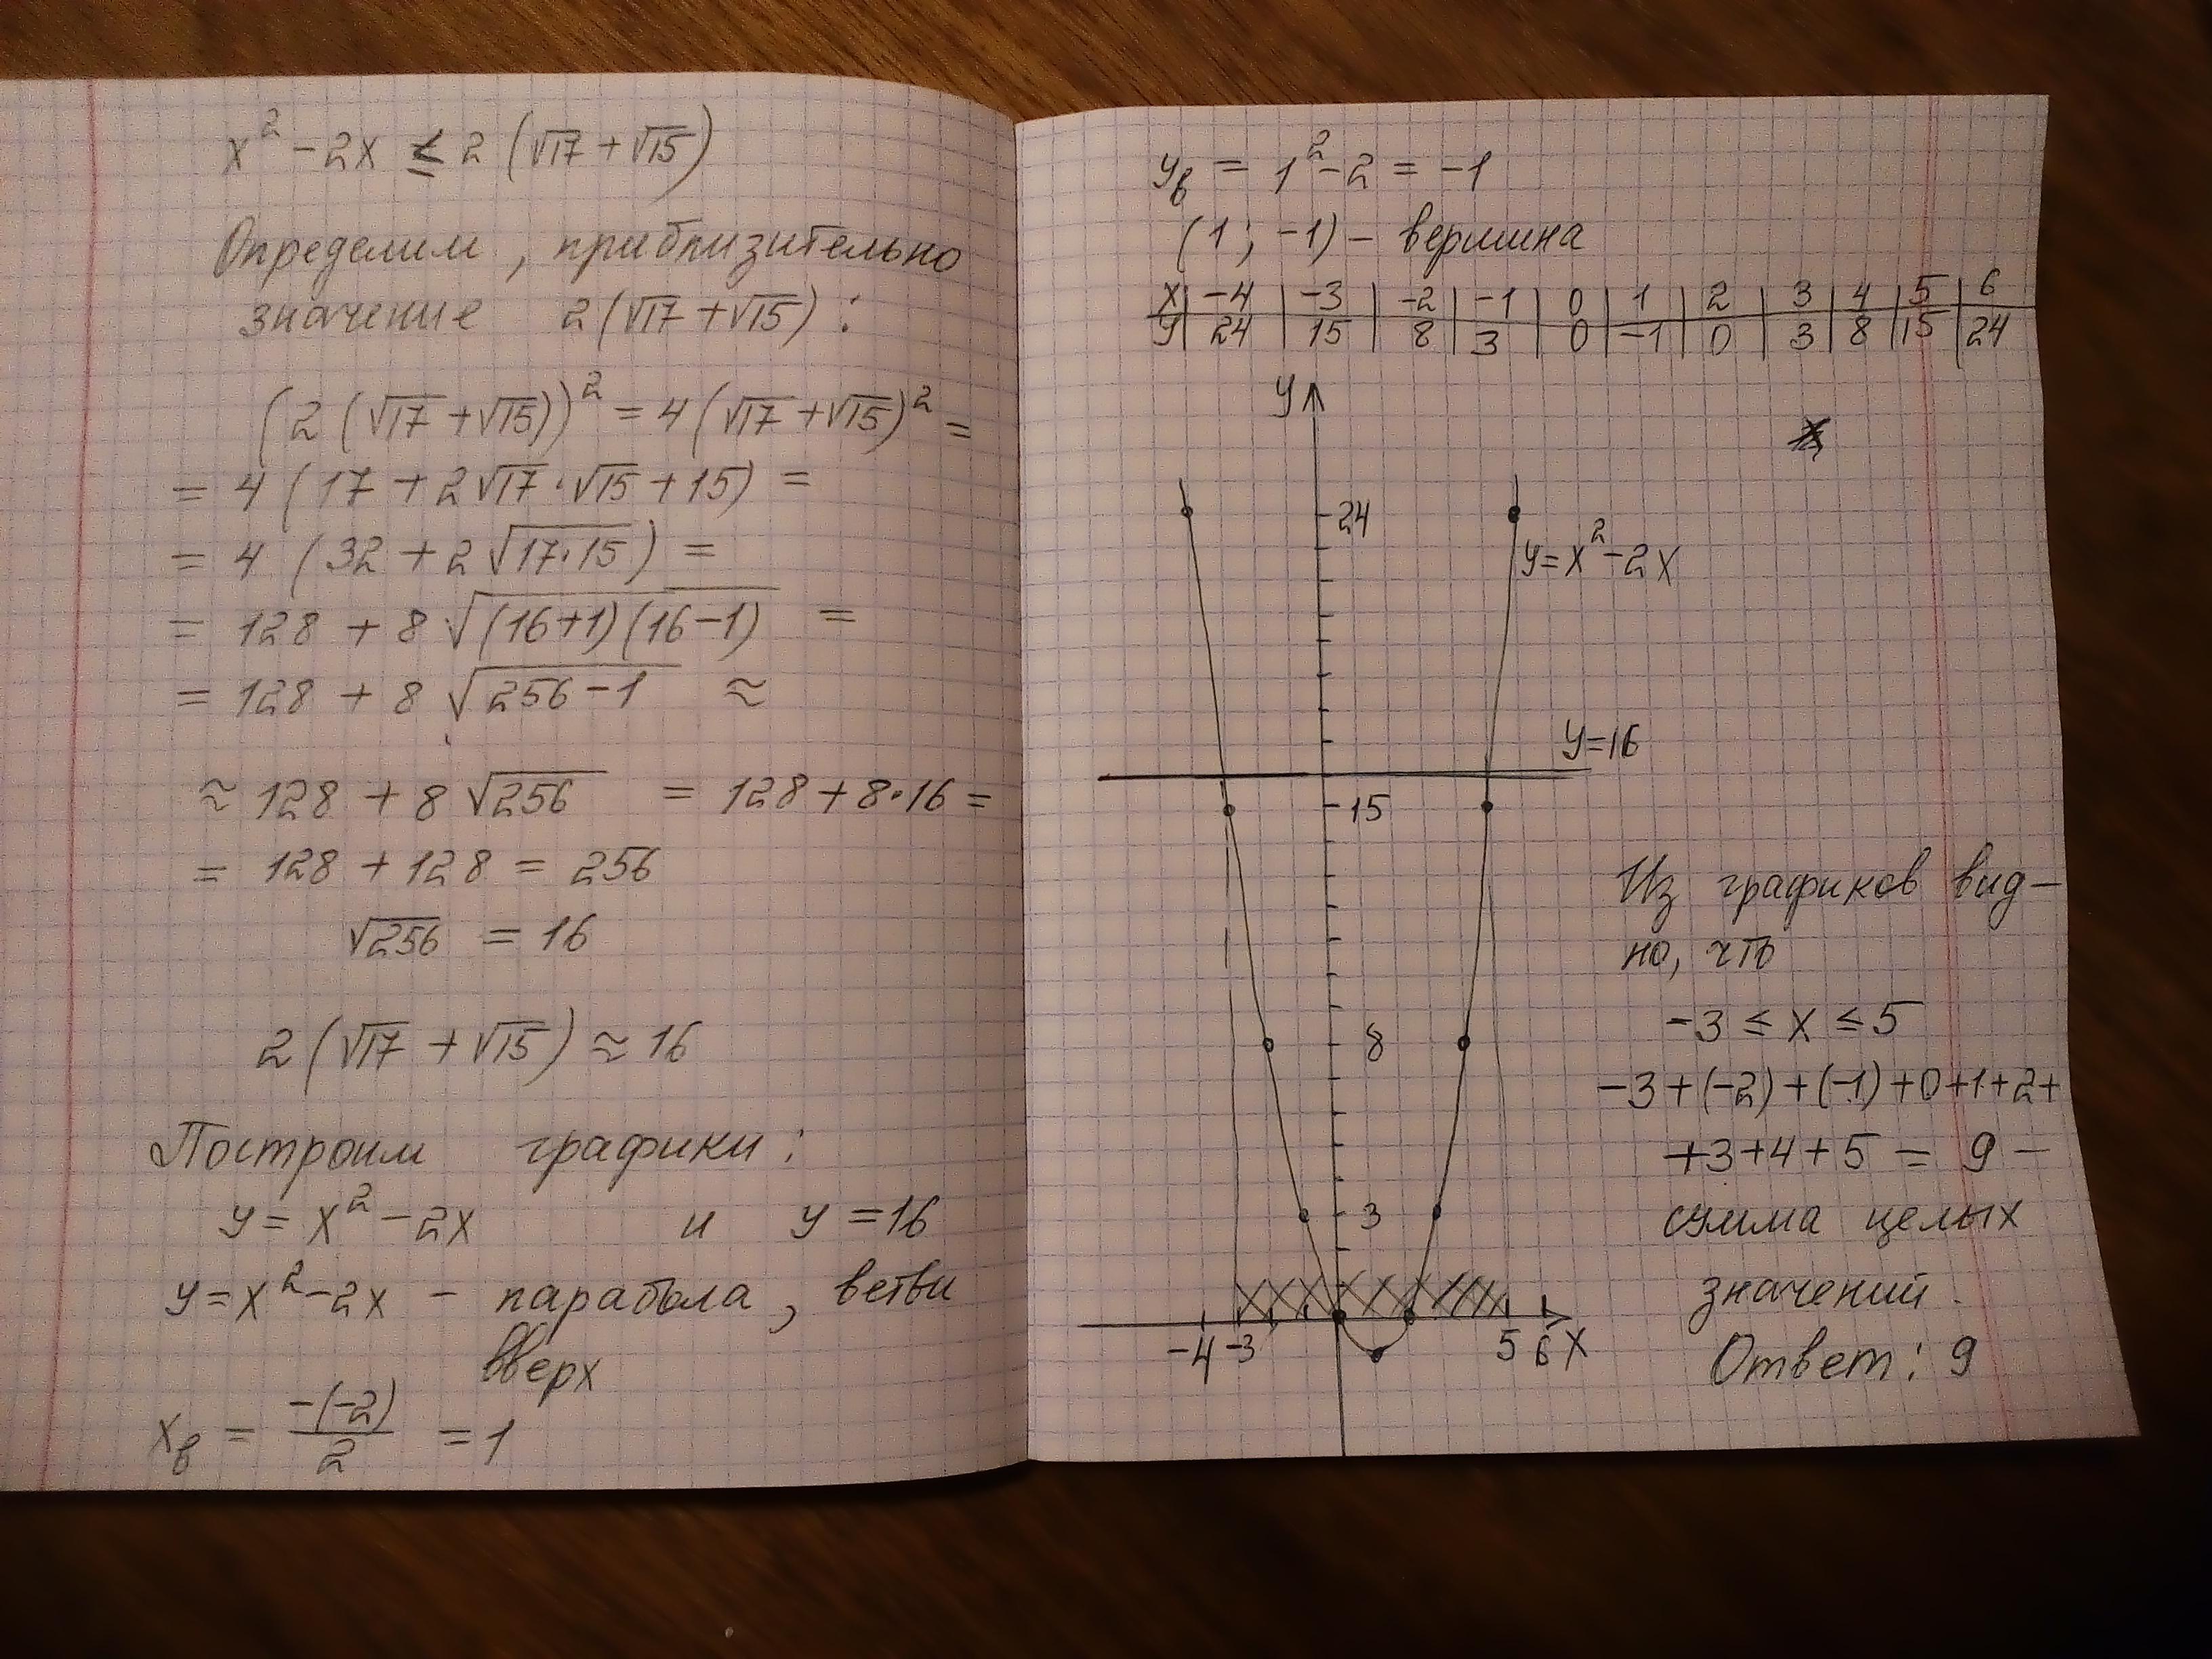 x² - 2x ≤ 2 (√17 + √15)
Определим, приблизительно
значение 2(√17 + √15) :
(2 (√17 + √15))² = 4 (√17 + √15)² =
= 4 (17 + 2√17 · √15 + 15) =
= 4 (32 + 2√17·15) =
= 128 + 8 √(16+1)(16-1) =
= 128 + 8 √256-1 ≈
≈ 128 + 8 √256 = 128 + 8·16 =
= 128 + 128 = 256
√256 = 16
2 (√17 + √15) ≈ 16
Построим графики:
y = x² - 2x и y = 16
y = x² - 2x - парабола, ветви
вверх
xв = -(-2)/2 = 1
yв = 1² - 2 = -1
(1; -1) - вершина
x | -4 | -3 | -2 | -1 | 0 | 1 | 2 | 3 | 4 | 5 | 6
y | 24 | 15 | 8 | 3 | 0 | -1 | 0 | 3 | 8 | 15 | 24
y
24
y = x² - 2x
y=16
15
8
3
-4 -3 5 6 x
Из графиков вид-
но, что
-3 ≤ x ≤ 5
-3 + (-2) + (-1) + 0 + 1 + 2 +
+3 + 4 + 5 = 9 -
сумма целых
значений.
Ответ: 9